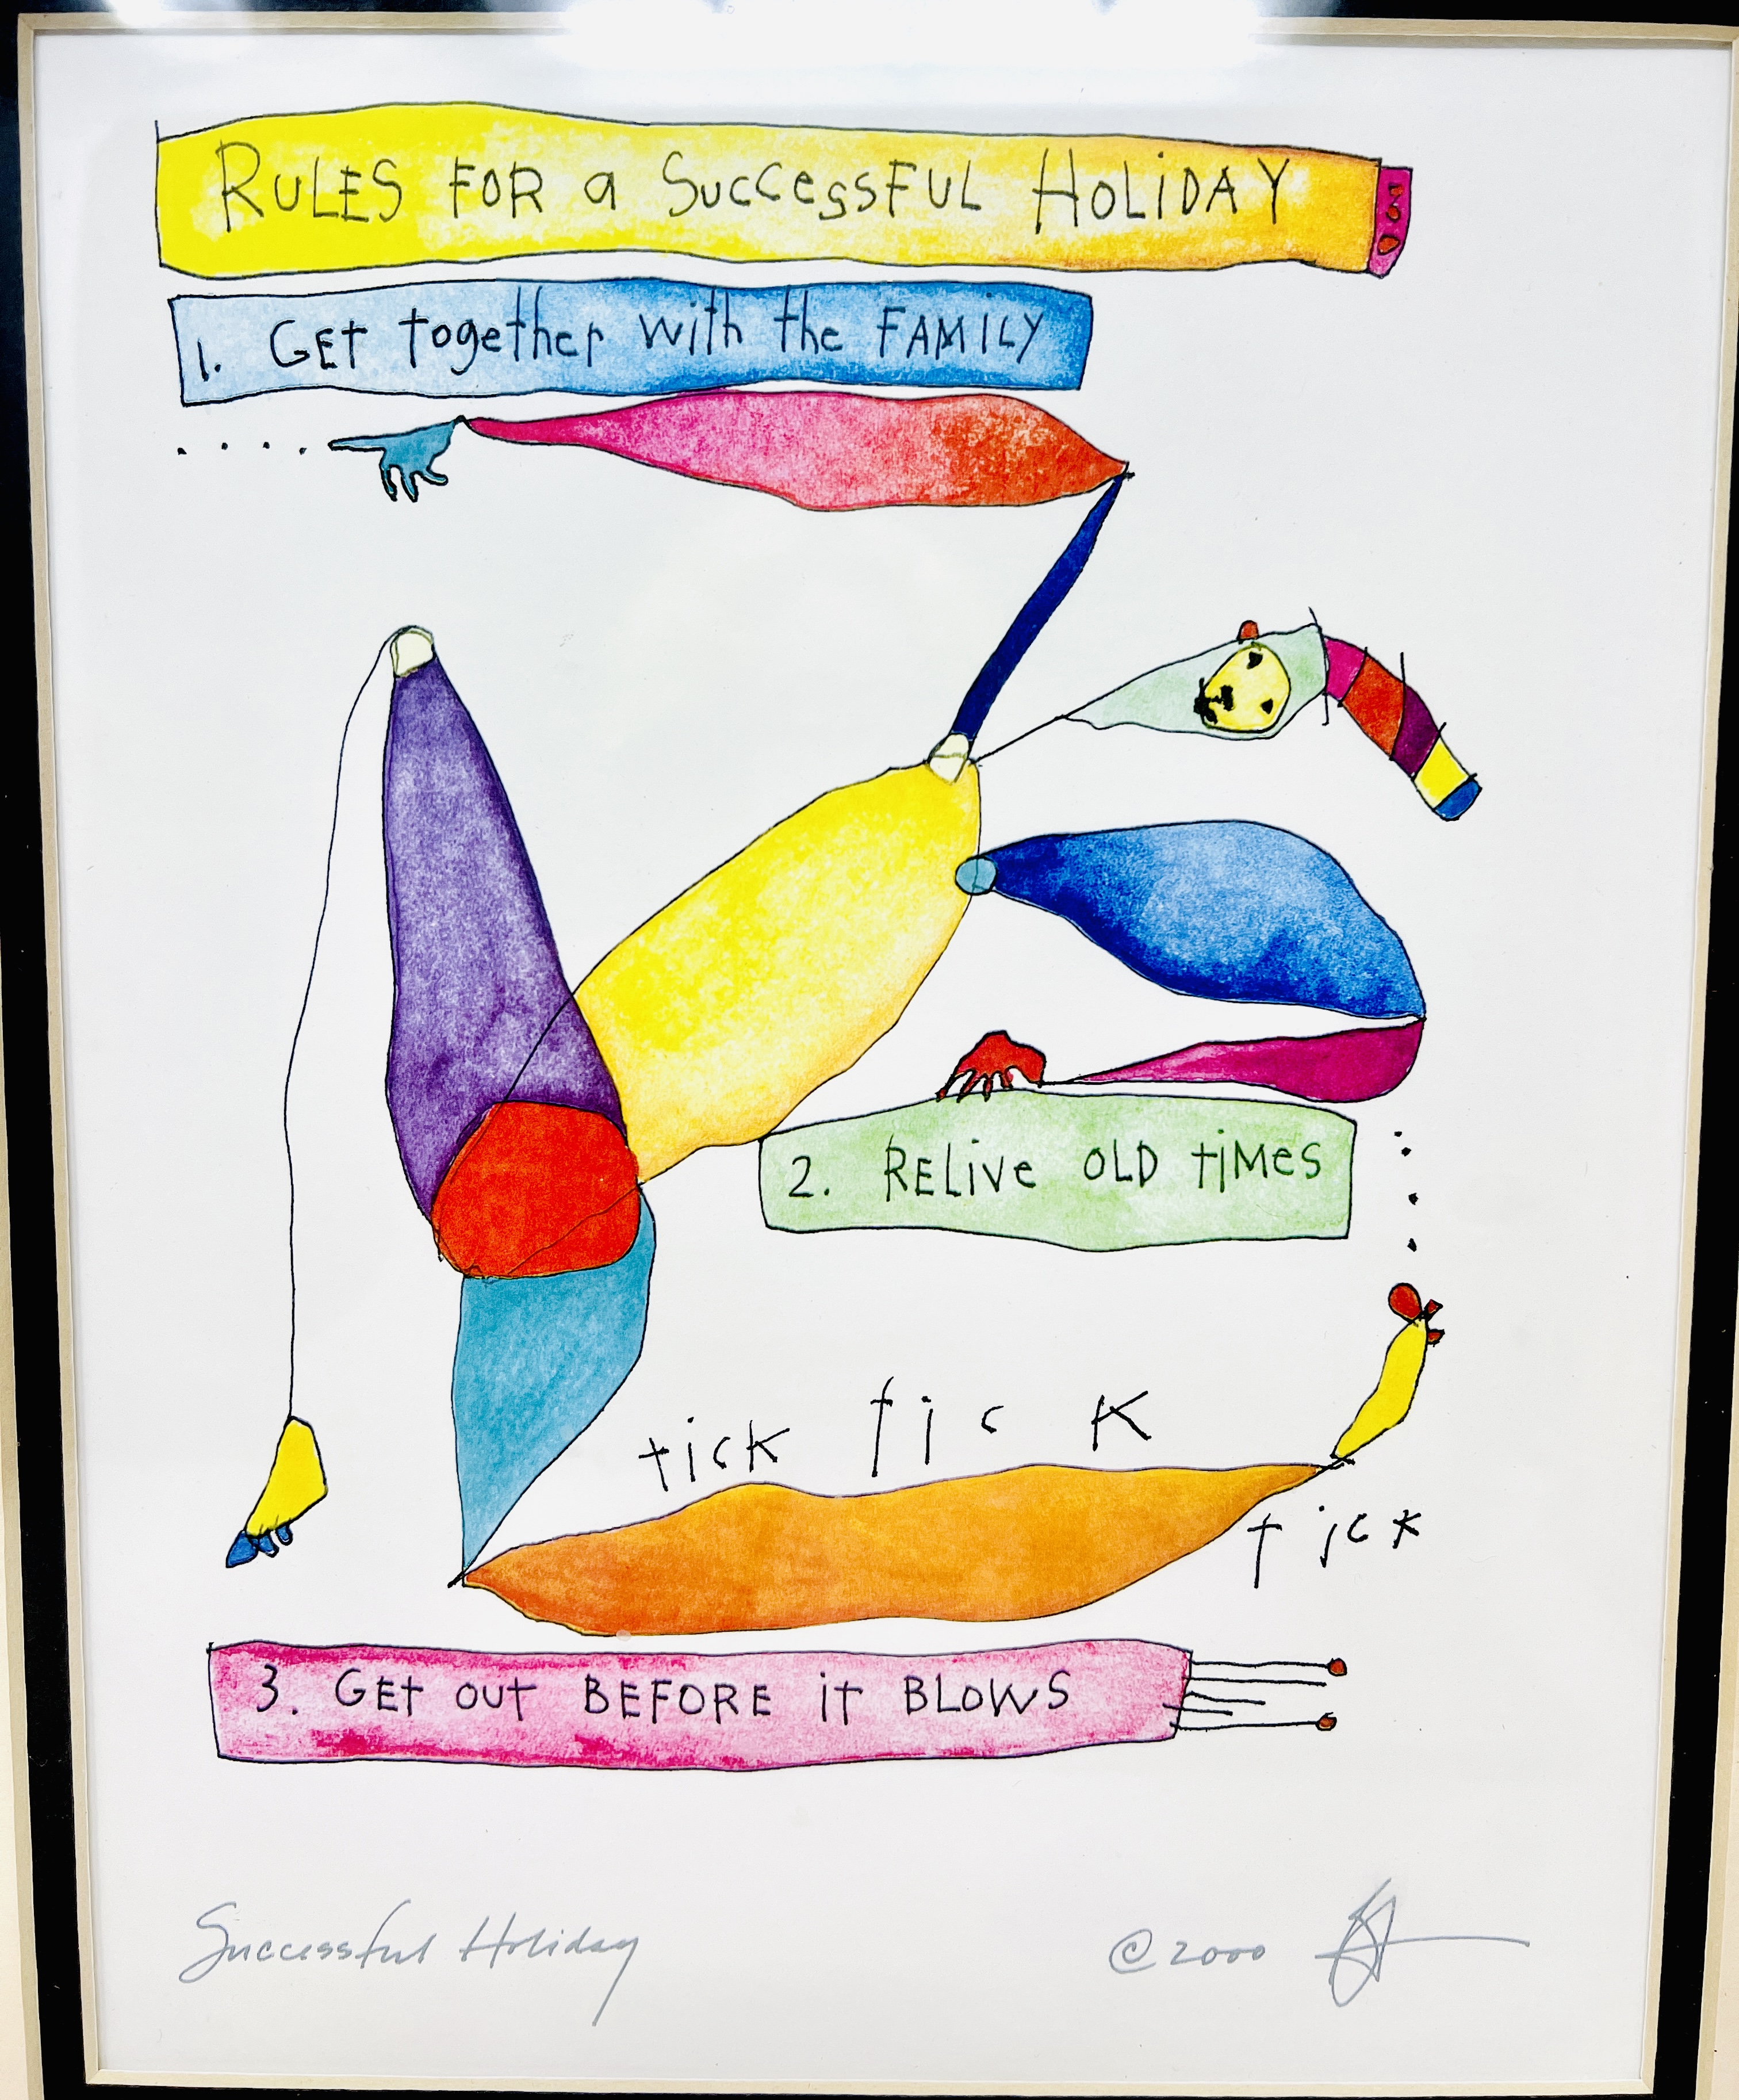 RULES FOR a SuccessFUL HOLiDAY
1. GET together with the FAMILY
2. RELive OLD tiMes
tick tick
tick
3. GEt out BEFORE it BLOWS
Successful Holiday
© 2000